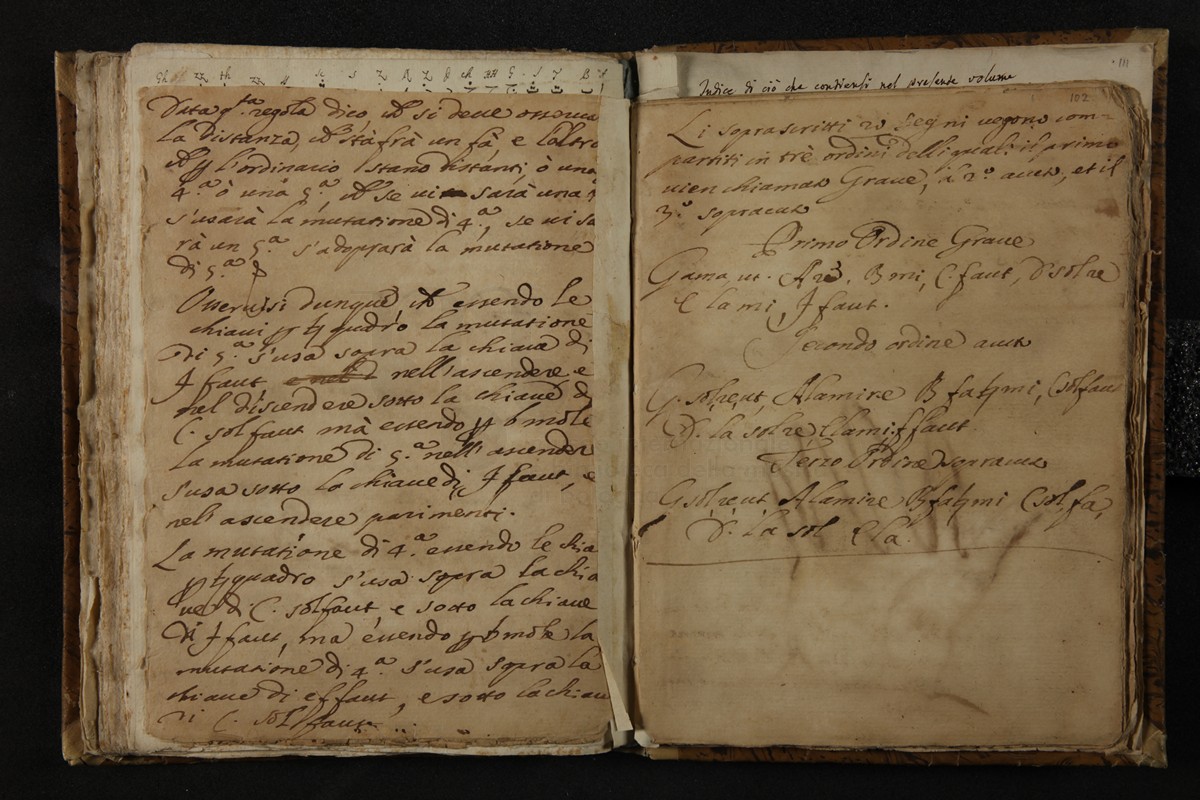 Data q.ta regola dico, ch si deve osserua
La distanza, ch stà frà un fà e l'altro
ch p l'ordinario stano distanti ò una
4.ª ò una 5.ª, ch se ui sarà una 4
s'usarà la mutatione di 4.ª, se ui sa
rà un 5.ª s'adoprarà la mutatione
di 5.ª
Osseruisi dunque ch essendo le
chiaui p ♮ quadro la mutatione
Di 5.ª s'usa sopra la chiaue di
F faut nell'ascendere e
nel discendere sotto la chiaue di
C. solfaut mà essendo p b mole
La mutatione di 5.ª nell'ascender
s'usa sotto la chiaue di F faut, e
nel'ascendere parimenti.
La mutatione di 4.ª essendo le chia
p ♮ quadro s'usa sopra la chia
ue di C. solfaut e sotto la chiaue
Di F faut, ma essendo p b mole la
mutatione di 4.ª s'usa sopra la
chiaue di effaut, e sotto la chiau
di C. solfaut
Indice di ciò che contiensi nel presente volume
111
102
Li soprascritti 20 Segni uegono com=
partiti in trè ordini delli quali il primo
uien chiamato Graue, il 2.º acuto, et il
3.º sopracuto
Primo Ordine Graue
Gama, ut. Are. B mi, C. faut, D solre
E la mi, F faut.
Secondo ordine acuto
G. solreut, Alamire B fa♮mi, Csolfaut
D. la solre Elami ffaut.
Terzo Ordine sopracuto
Gsolreut Alamire Bfa♮mi Csol,fa,
D. La sol Ela.